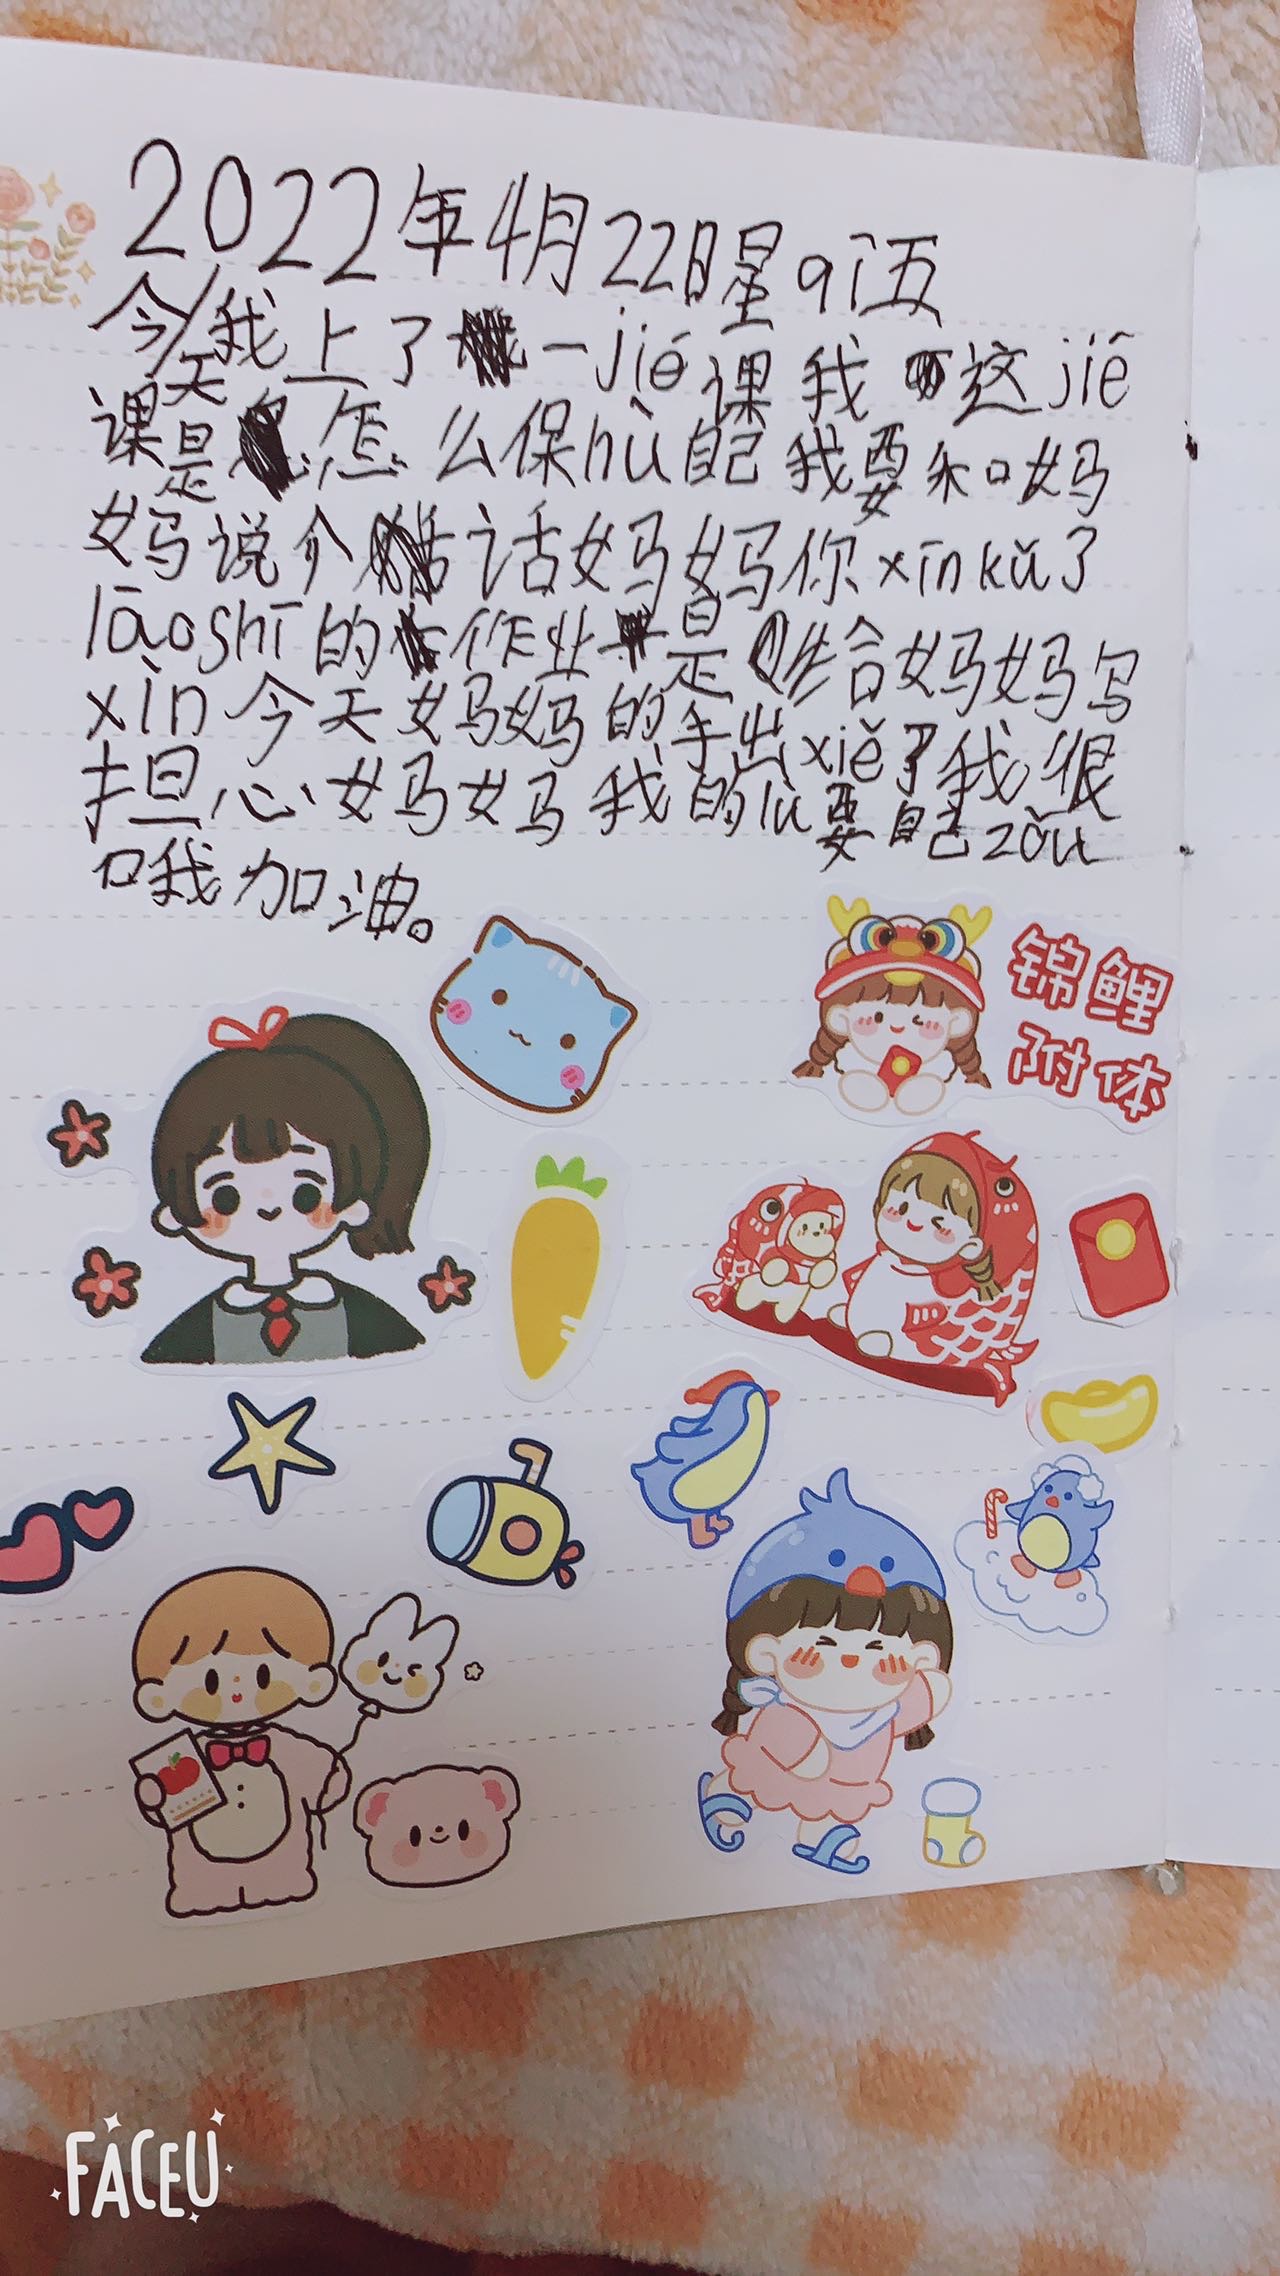 2022年4月22日星qī五
今天我上了一jié课我这jiē
课是怎么保hù自己我要和妈
妈说介话妈妈你xīnkǔ了
lǎoshī的作业是给妈妈写
xìn今天妈妈的手出xiě了我很
担心妈妈我的lù要自己zǒu
哦我加油。
锦鲤
附体
FACEU